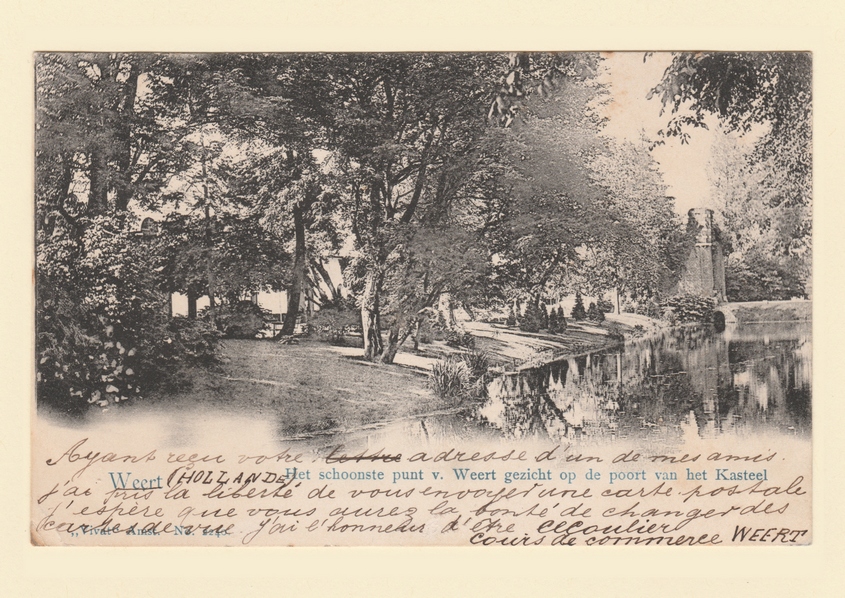 Ayant reçu votre lettre adresse d'un de mes amis.
Weert (HOLLANDE) Het schoonste punt v. Weert gezicht op de poort van het Kasteel
j'ai pris la liberté de vous envoyer une carte postale
j'espère que vous aurez la bonté de changer des
cartes de vue j'ai l'honneur d'être
„Vivat" Amst. No.
cours de commerce WEERT